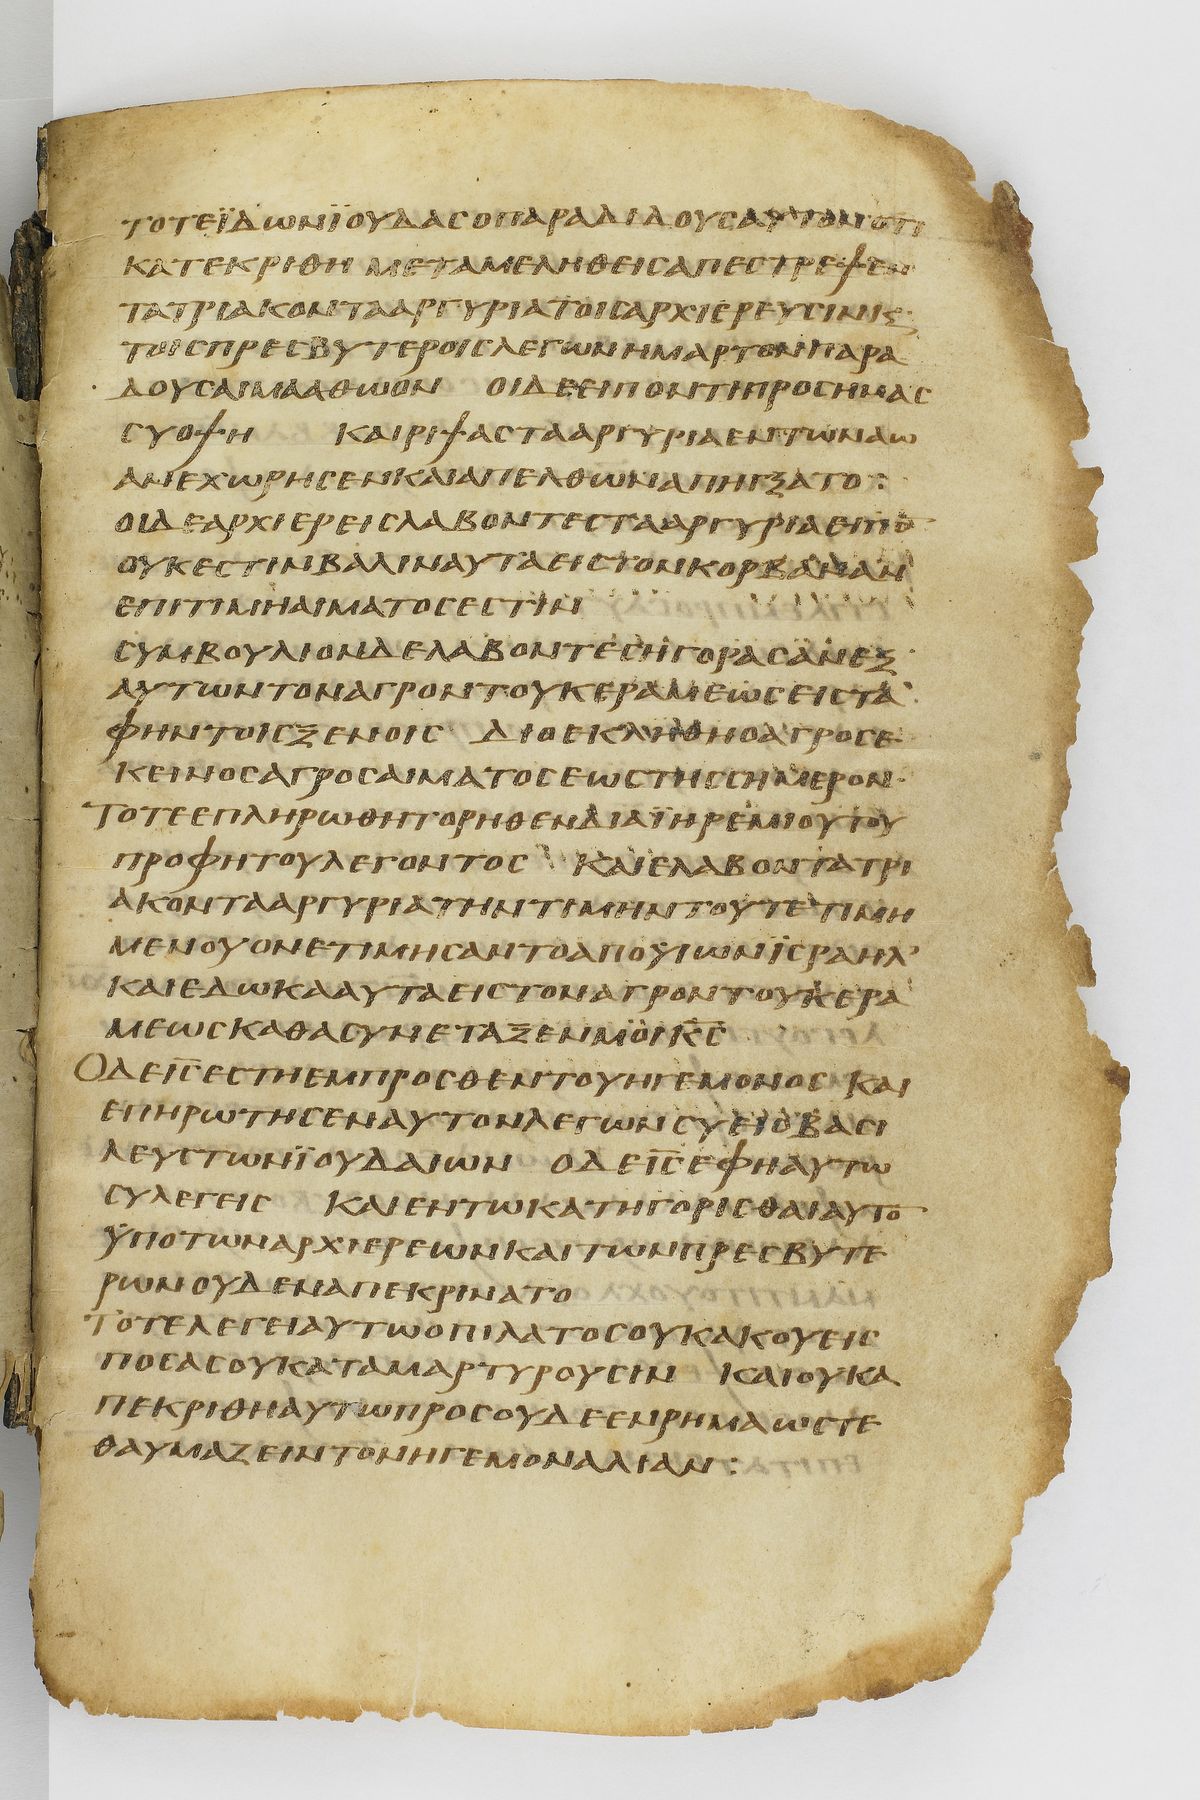 ΤΟΤΕΪΔΩΝΪΟΥΔΑΣΟΠΑΡΑΔΙΔΟΥΣΑΥΤΟΝΟΤΙ
ΚΑΤΕΚΡΙΘΗ ΜΕΤΑΜΕΛΗΘΕΙΣΑΠΕΣΤΡΕΨΕΝ
ΤΑΤΡΙΑΚΟΝΤΑΑΡΓΥΡΙΑΤΟΙΣΑΡΧΙΕΡΕΥΣΙΝΚ
ΤΟΙΣΠΡΕΣΒΥΤΕΡΟΙΣΛΕΓΩΝΗΜΑΡΤΟΝΠΑΡΑ
ΔΟΥΣΑΙΜΑΑΘΩΟΝ ΟΙΔΕΕΙΠΟΝΤΙΠΡΟΣΗΜΑΣ
ΣΥΟΨΗ ΚΑΙΡΙΨΑΣΤΑΑΡΓΥΡΙΑΕΝΤΩΝΑΩ
ΑΝΕΧΩΡΗΣΕΝΚΑΙΑΠΕΛΘΩΝΑΠΗΓΞΑΤΟ:
ΟΙΔΕΑΡΧΙΕΡΕΙΣΛΑΒΟΝΤΕΣΤΑΑΡΓΥΡΙΑΕΙΠΟ̅
ΟΥΚΕΣΤΙΝΒΑΛΙΝΑΥΤΑΕΙΣΤΟΝΚΟΡΒΑΝΑΝ
ΕΠΙΤΙΜΗΑΙΜΑΤΟΣΕΣΤΙΝ
ΣΥΜΒΟΥΛΙΟΝΔΕΛΑΒΟΝΤΕΣΗΓΟΡΑΣΑΝΕΞ
ΑΥΤΩΝΤΟΝΑΓΡΟΝΤΟΥΚΕΡΑΜΕΩΣΕΙΣΤΑ
ΦΗΝΤΟΙΣΞΕΝΟΙΣ ΔΙΟΕΚΛΗΘΗΟΑΓΡΟΣΕ
ΚΕΙΝΟΣΑΓΡΟΣΑΙΜΑΤΟΣΕΩΣΤΗΣΣΗΜΕΡΟΝ·
ΤΟΤΕΕΠΛΗΡΩΘΗΤΟΡΗΘΕΝΔΙΑΪΗΡΕΜΙΟΥΤΟΥ
ΠΡΟΦΗΤΟΥΛΕΓΟΝΤΟΣ ΚΑΙΕΛΑΒΟΝΤΑΤΡΙ
ΑΚΟΝΤΑΑΡΓΥΡΙΑΤΗΝΤΙΜΗΝΤΟΥΤΕΤΙΜΗ
ΜΕΝΟΥΟΝΕΤΙΜΗΣΑΝΤΟΑΠΟΥΙΩΝΙΣΡΑΗΛ
ΚΑΙΕΔΩΚΑΑΥΤΑΕΙΣΤΟΝΑΓΡΟΝΤΟΥΚΕΡΑ
ΜΕΩΣΚΑΘΑΣΥΝΕΤΑΞΕΝΜΟΙΚ̅Σ̅
ΟΔΕΙ̅Σ̅ΕΣΤΗΕΜΠΡΟΣΘΕΝΤΟΥΗΓΕΜΟΝΟΣ ΚΑΙ
ΕΠΗΡΩΤΗΣΕΝΑΥΤΟΝΛΕΓΩΝΣΥΕΙΟΒΑΣΙ
ΛΕΥΣΤΩΝΪΟΥΔΑΙΩΝ ΟΔΕΙ̅Σ̅ΕΦΗΑΥΤΩ
ΣΥΛΕΓΕΙΣ ΚΑΙΕΝΤΩΚΑΤΗΓΟΡΙΣΘΑΙΑΥΤΟ̅
ΫΠΟΤΩΝΑΡΧΙΕΡΕΩΝΚΑΙΤΩΝΠΡΕΣΒΥΤΕ
ΡΩΝΟΥΔΕΝΑΠΕΚΡΙΝΑΤΟ
ΤΟΤΕΛΕΓΕΙΑΥΤΩΟΠΙΛΑΤΟΣΟΥΚΑΚΟΥΕΙΣ
ΠΟΣΑΣΟΥΚΑΤΑΜΑΡΤΥΡΟΥΣΙΝ ΚΑΙΟΥΚΑ
ΠΕΚΡΙΘΗΑΥΤΩΠΡΟΣΟΥΔΕΕΝΡΗΜΑΩΣΤΕ
ΘΑΥΜΑΖΕΙΝΤΟΝΗΓΕΜΟΝΑΛΙΑΝ: